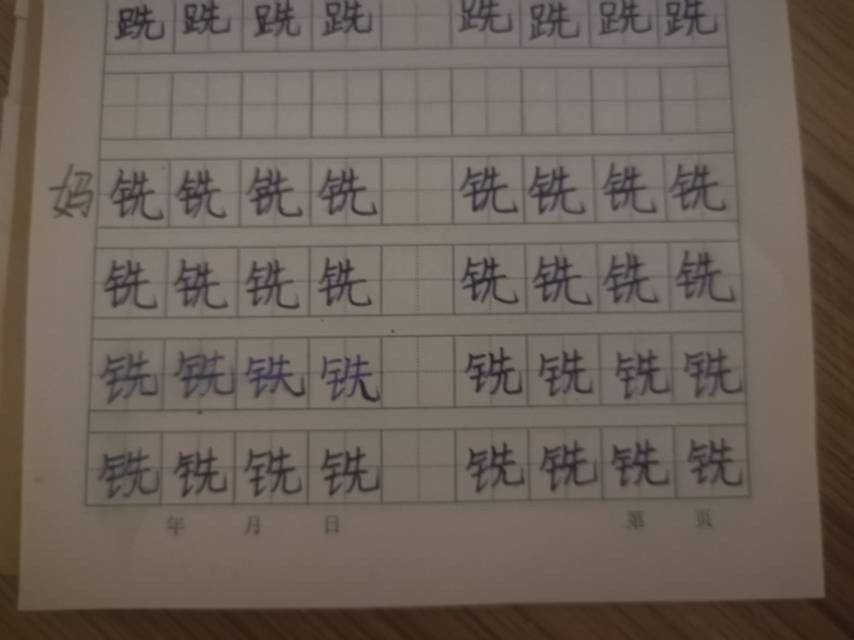 跣跣跣跣 跣跣跣跣
妈 铣铣铣铣 铣铣铣铣
铣铣铣铣 铣铣铣铣
铣铣铣铣 铣铣铣铣
铣铣铣铣 铣铣铣铣
年 月 日 第 页